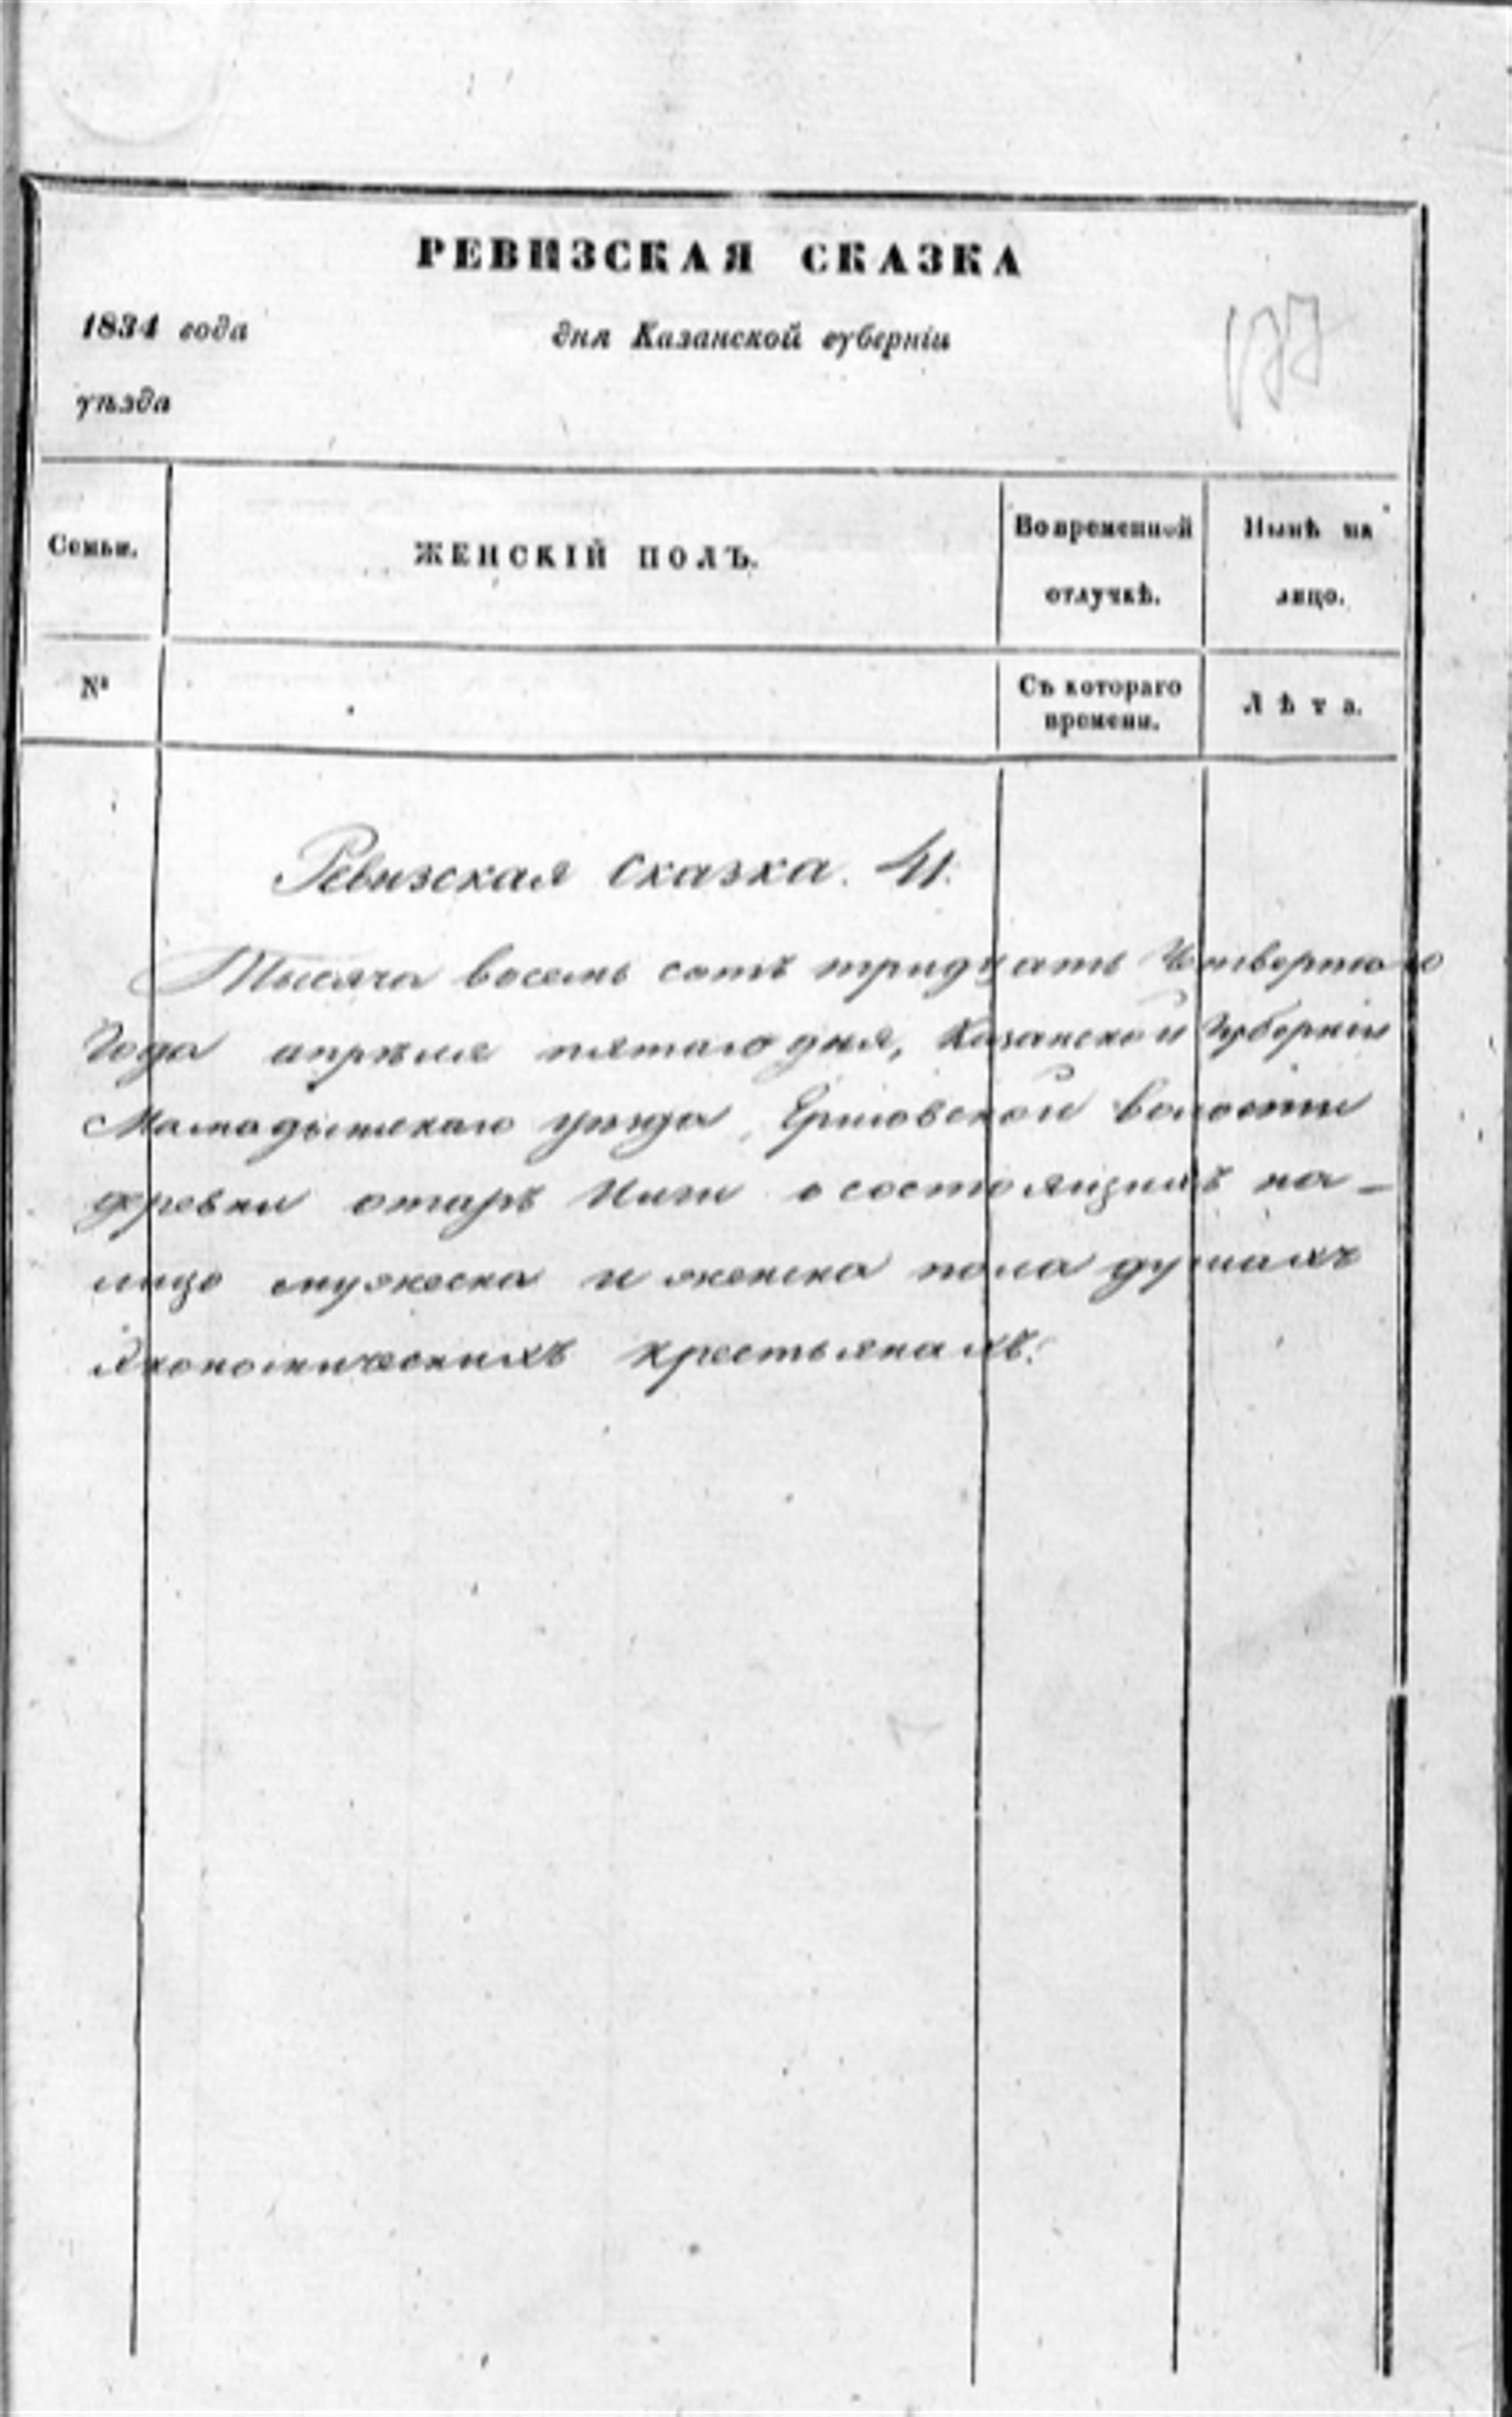 РЕВИЗСКАЯ СКАЗКА
1834 года дня Казанской губерніи
177
уѣзда
Семьи. ЖЕНСКІЙ ПОЛЪ. Во временной отлучкѣ. Нынѣ на лицо.
№ Съ котораго времени. Лѣта.
Ревизская сказка. 41.
Тысяча восемь сотъ тридцать Четвертаго
Года апрѣля пятаго дня, Казанской Губерніи
Мамадышскаго уѣзда, волости
деревни отаръ о состоящихъ на-
лицо мужеска и женска пола душахъ
Экономическихъ крестьянахъ.